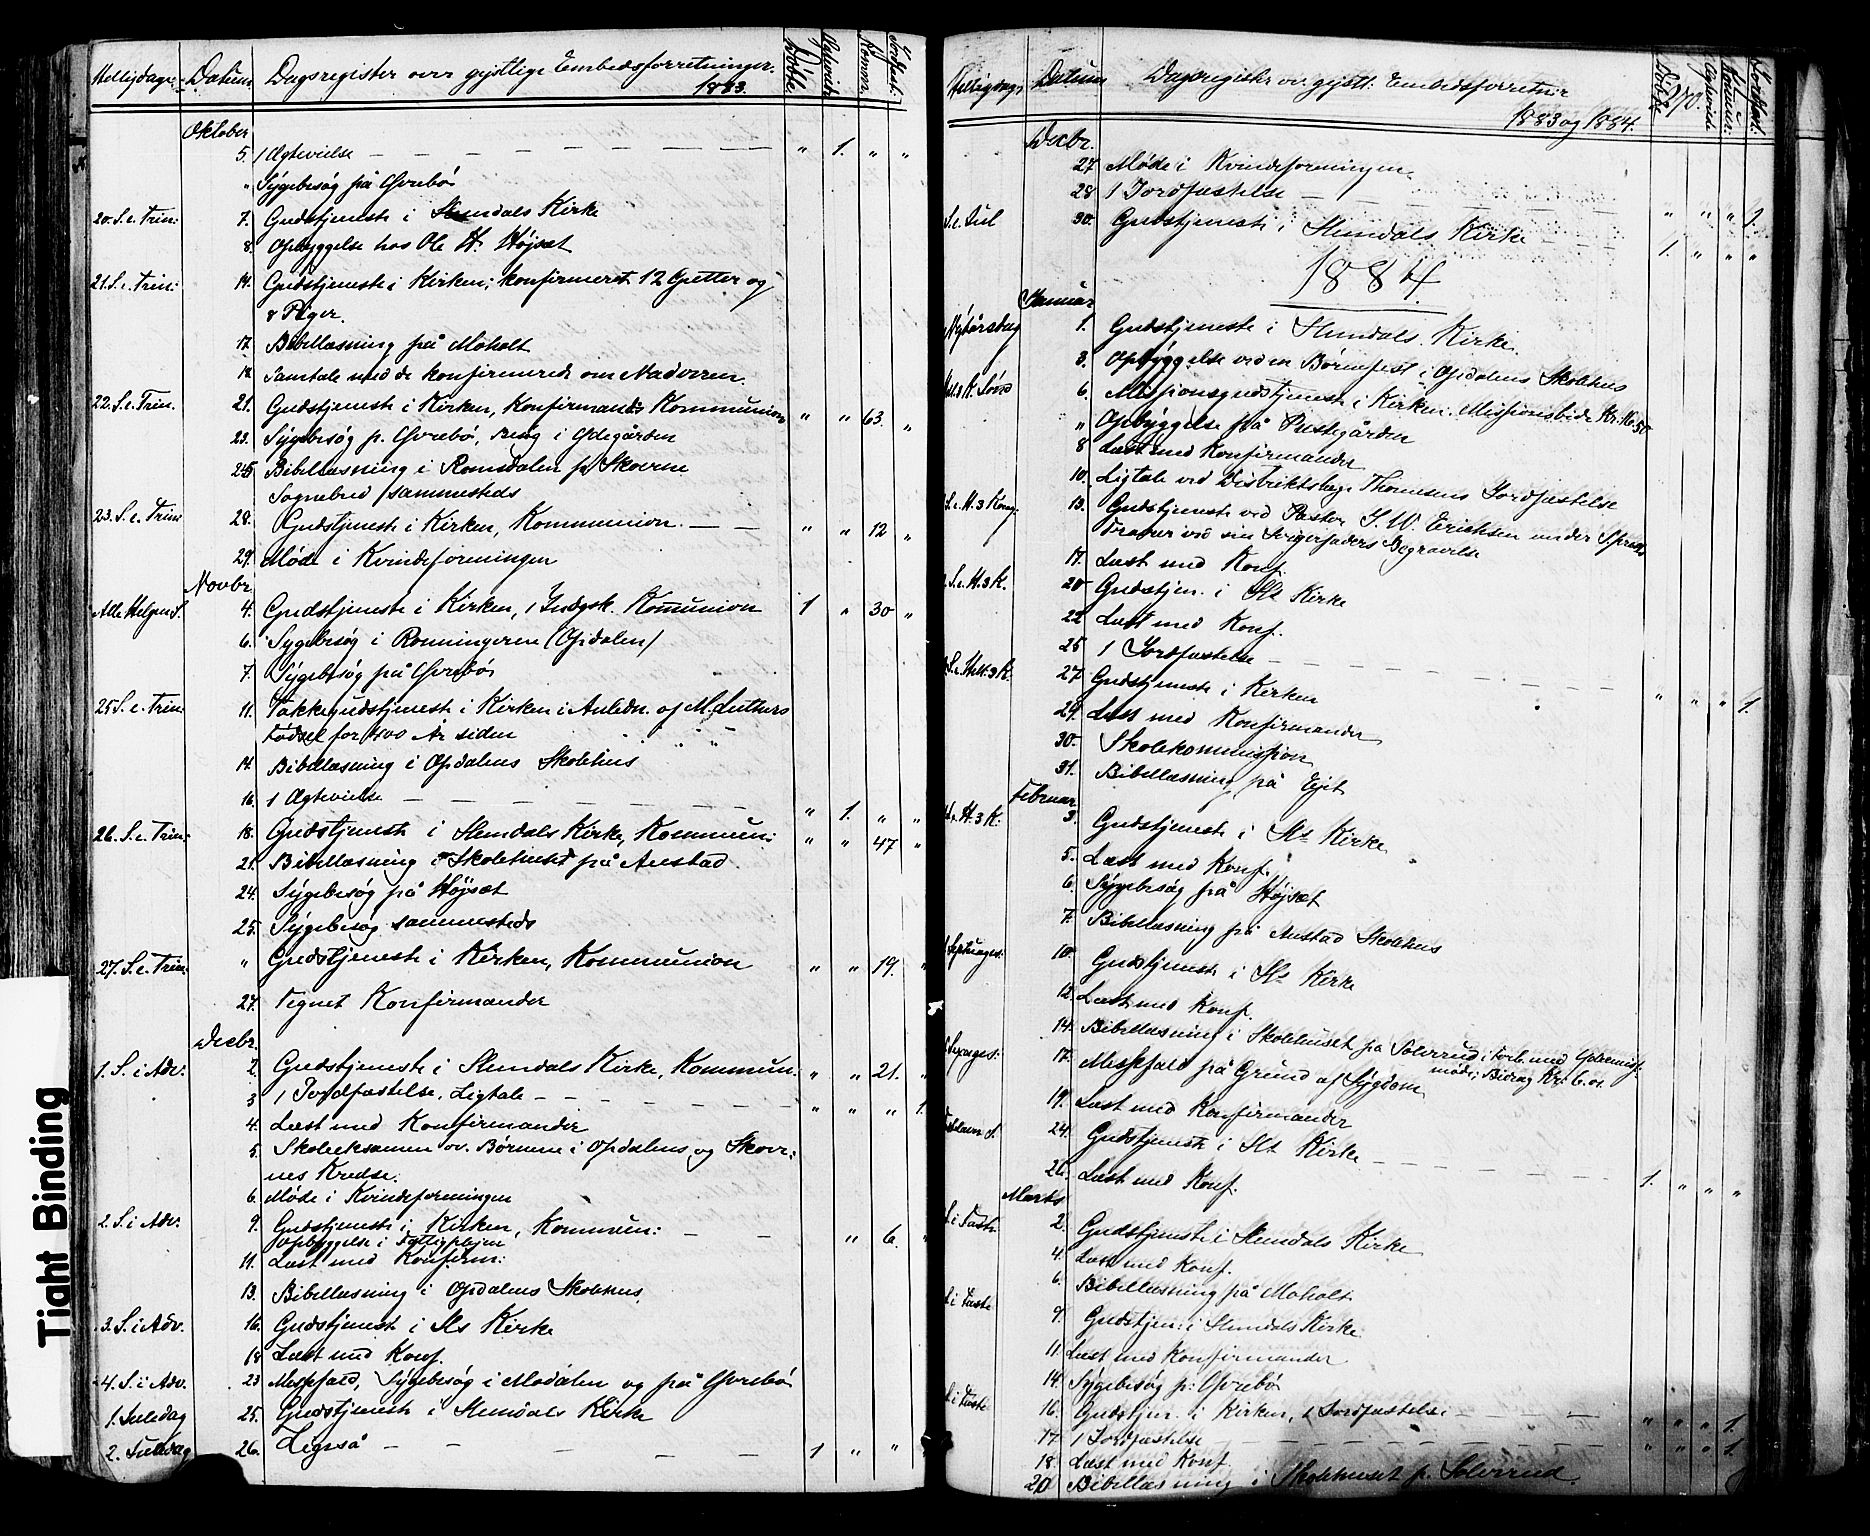 Helligdage. Datum Dagsregister over gejstlige Embedsforretninger. Døbte Ægteviede Kommun. Jordfæst.
1883.
Oktober
5. 1 Ægtevielse — " 1. " "
" Sygebesøg på Øvrebø
20. S. e. Trin: 7. Gudstjeneste i Slemdals Kirke
8. Opbyggelse hos Ole H. Højsæt
21. S. e. Trin: 14. Gudstjeneste i Kirken; konfirmeret 12 Gutter og
8 Piger.
17. Bibellæsning på Moholt
19. Samtale med de konfirmerede om Nadveren.
22. S. e. Trin. 21. Gudstjeneste i Kirken, Konfirmands Kommunion " " 63. "
23. Sygebesøg p. Øvrebø, i Ødegården
25 Bibellæsning i Romsdalen p. Skoerne
Sognebud sammesteds
23. S. e. Trin 28. Gudstjeneste i Kirken, Kommunion. — — " " 12 "
29. Møde i Kvindeforeningen
Novbr.
Alle Helgens S. 4. Gudstjeneste i Kirken, 1 Indgsk. Komunion 1 " 30 "
6. Sygebesøg i Rønningerne (Opdalen)
7. Sygebesøg på Øvrebø
25 S. e. Trin: 11. Takkegudstjeneste i Kirken i Anledn. af M. Luthers
Fødsel for 400 År siden
14. Bibellæsning i Opdalens Skolehus
16. 1 Ægtevielse — " 1. " "
26. S. e. Trin: 18. Gudstjeneste i Slemdals Kirke, Kommun: " " 47 "
21. Bibellæsning i Skolehuset på Anstad
24. Sygebesøg på Højsæt
25. Sygebesøg sammesteds
27. S. e. Trin " Gudstjeneste i Kirken, Kommunion " " 19. "
27. Tegnet Konfirmander
Decbr.
1. S. i Adv. 2. Gudstjeneste i Slemdals Kirke, Kommun. " " 21. "
3 1 Jordfæstelse, Ligtale — " " " 1.
4. Læst med Konfirmander
5. Skoleeksamen ov. Børnene i Opdalens og Skover-
nes Kredse.
6. Møde i Kvindeforeningen
2. S. i Adv. 9. Gudstjeneste i Kirken, Kommun: — — " 6. "
Opbyggelse i Fattigplejen
11. Læst med Konfirm:
13. Bibellæsning i Opdalens Skolehus.
3. S. i Adv. 16. Gudstjeneste i Sls Kirke
18 Læst med Konf.
4. S. i Adv. 23 Messefald, Sygebesøg i Modalen og på Øvrebø
1. Juledag 25. Gudstjeneste i Slemdals Kirke
2. Juledag 26. Ligeså — — — 1 " "
Helligdage Datum Dagsregister ov. gejstl. Embedsforretn. Døbte Ægteviede Kommun. Jordfæst.
1883 og 1884. 270.
Decbr.
27 Møde i Kvindeforeningen
28 1 Jordfæstelse — " " " 1.
S. e. Jul 30. Gudstjeneste i Slemdals Kirke — 1. " " "
1884.
Januar
Nytårsdag 1. Gudstjeneste i Slemdals Kirke.
3. Opbyggelse ved en Børnefest i Opdalens Skolehus
6. Missionsgudstjeneste i Kirken. Missionsbidr. Kr.
" Opbyggelse på Præstegården
8 Læst med Konfirmander
10. Ligtale ved Distriktslæge Thomesens Jordfæstelse
S. e. H. 3 Kong. 13. Gudstjeneste ved Pastor J. W. Erichsen under
Fravær ved sin Svigerfaders Begravelse
17. Læst med Konf.
S. e. H. 3 K. 20 Gudstjen. i Sls Kirke
22 Læst med Konf.
25 1 Jordfæstelse — " " " 1.
S. e. Hell. 3 K. 27 Gudstjeneste i Kirken
29. Læst med Konfirmander
30. Skolekommission
31. Bibellæsning på Ejet
Februar
H. 3 K. 3. Gudstjeneste i Sls Kirke
5. Læst med Konf.
6. Sygebesøg på Højsæt
7. Bibellæsning på Anstad Skolehus
Septuages: 10. Gudstjeneste i Sls Kirke
12. Læst med Konf.
14. Bibellæsning i Skolehuset på Solverud i Forb. med
møde; Bidrag Kr. 6.01
17. Messefald på Grund af Sygdom
19. Læst med Konfirmander
Fastelavns S. 24. Gudstjeneste i Sls Kirke — 1. " " "
26. Læst med Konf.
Marts
S. i Faste 2. Gudstjeneste i Slemdals Kirke
4. Læst med Konf.
6. Bibellæsning på Moholt
S. i Faste 9. Gudstjen: i Slemdals Kirke
11. Læst med Konfirmander
14. Sygebesøg p: Øvrebø
S. i Faste 16. Gudstjen. i Kirken, 1 Jordfæstelse — " " " 1.
17. 1 Jordfæstelse — " " " 1.
18. Læst med Konf.
20 Bibellæsning i Skolehuset p. Solverud.
Tight Binding